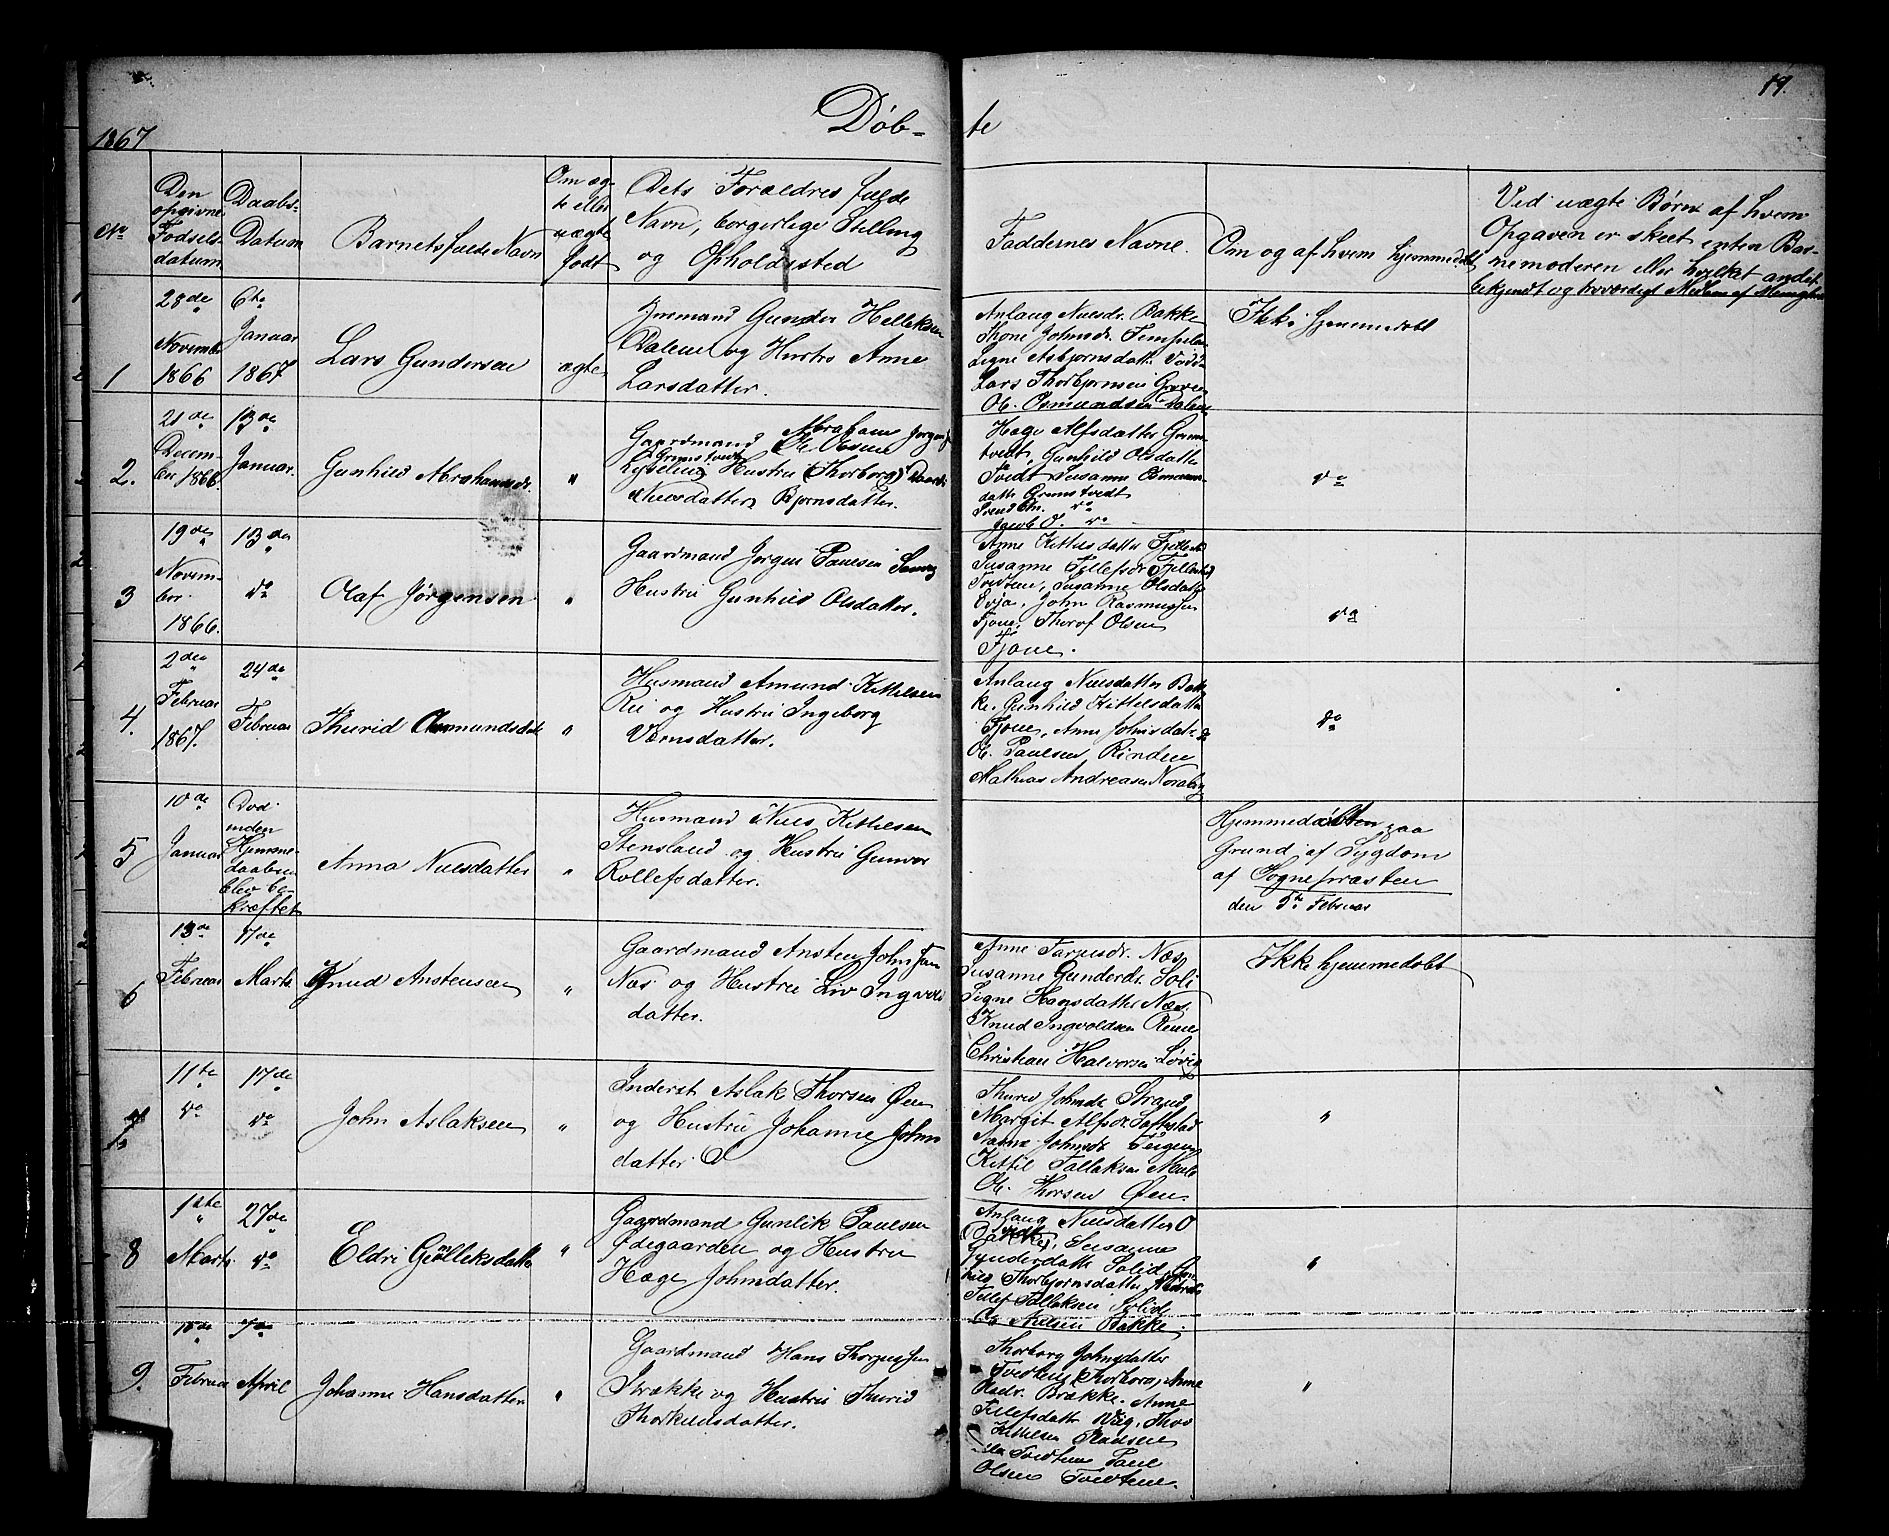 19.
1867
Døb-
te
No
Den
opgivne
Fødsels-
datum
Daabs-
Datum
Barnets fulde Navn
Om æg-
te eller
uægte
født
Dets Forældres fulde
Navn, borgerlige Stilling
og Opholdssted
Faddernes Navne.
Om og af hvem hjemmedøbt
Ved uægte Børn af hvem
Opgaven er skeet enten Bar-
nemoderen eller hvilket andet
bekjendt og troværdigt Medlem af Menigh
1
28de
Novembr
1866
6te
Januar
1867
Lars Gundersen
ægte
Gunder Helleksen
Dalen og Hustru Anne
Larsdatter.
Anlaug Nielsdr. Bakke
Thone Johnsdr.
Signe Asbjørnsdatte
Lars Thorbjørnsen
Ol. Osmundsen Dalen
Ikke hjemmedøbt
2.
21de
Decem-
ber 1866
13de
Januar.
Gunhild Abrahamsdr.
"
Abraham Jørgens
Gaardmand Ole Olsen
Grimstvedt
Hustru (Thorborg)
Nielsdatter Bjørnsdatter.
Hæge Alfsdatter Grim-
tvedt, Gunhild Olsdatter
Tvedt Susanne Osmunds-
datte Grimstvedt
Svend Chr. do
Jacob O. do
do
3
19de
Novem-
ber
1866.
13de
do
Olaf Jørgensen
"
Gaardmand Jørgen Paulsen
Hustru Gunhild Olsdatter.
Anne Kittilsdatter
Susanne Tellefsdr
Tvedtene, Susanne Olsdatte
John Rasmussen
Fjone, Thorof Olsen
Fjone.
do
4.
2den
Februar
1867.
24de
Februar
Thurid Amundsdatt
"
Husmand Amund Kittilsen
Rei og Hustru Ingeborg
Anlaug Nielsdatter Bak-
ke, Gunhild Kittilsdatter
Fjone, Anne Johnsdatte
Ol. Paulsen Rinden
Mathias Andreasen
do
5
10de
Januar
Død
inden
Hjemme-
daaben
blev be-
kræftet
Anna Nielsdatter
"
Husmand Niels Kittilsen
Stensland og Hustru Gunvor
Rollefsdatter.
Hjemmedøbt paa
Grund af Sygdom
af Sognepræsten
den 5te Februar
6
13de
Februar
17de
Marts
Knud Anstensen
"
Gaardmand Ansten Johnsen
Næs og Hustru Liv Ingvolds
datter.
Anne Tarjeisdr. Næs
Susanne Gundersdr. Solli
Signe Hansdatter Næs.
Knud Ingvoldsen
Christian Halvorsen
Ikke hjemmedøbt
7.
11te
do
17de
do
John Aslaksen
"
Inderst Aslak Thorsen Øen
og Hustru Johanne Johns
datter.
Thurid Johnsdr Strand
Margit Alfsdr.
Johnsdr Teigen
Kittil Tallaksen
Ol. Thorsen Øen.
"
8
1ste
Marts
27de
do
Eldri Gülleksdatter
"
Gaardmand Gunlik Paulsen
Ødegaarden og Hustru
Hæge Johnsdatter.
Anlaug Nielsdatter
Bakke, Susanne
Gundersdatte Solid,
Thorbjørnsdatter
Tellef Tallaksen Solid
Nielsen Bakke.
"
9.
10de
Februar
7de
April
Johanne Hansdatter
"
Gaardmand Hans Thorgussen
Brække og Hustru Thurid
Thorkildsdatter.
Thorborg Johnsdatter
Tvedtene (Thorborg) Anne
Brække. Anne
Tellefsdatte
Kittilsen
Tvedtene Paul
Olsen Tvedtene.
"